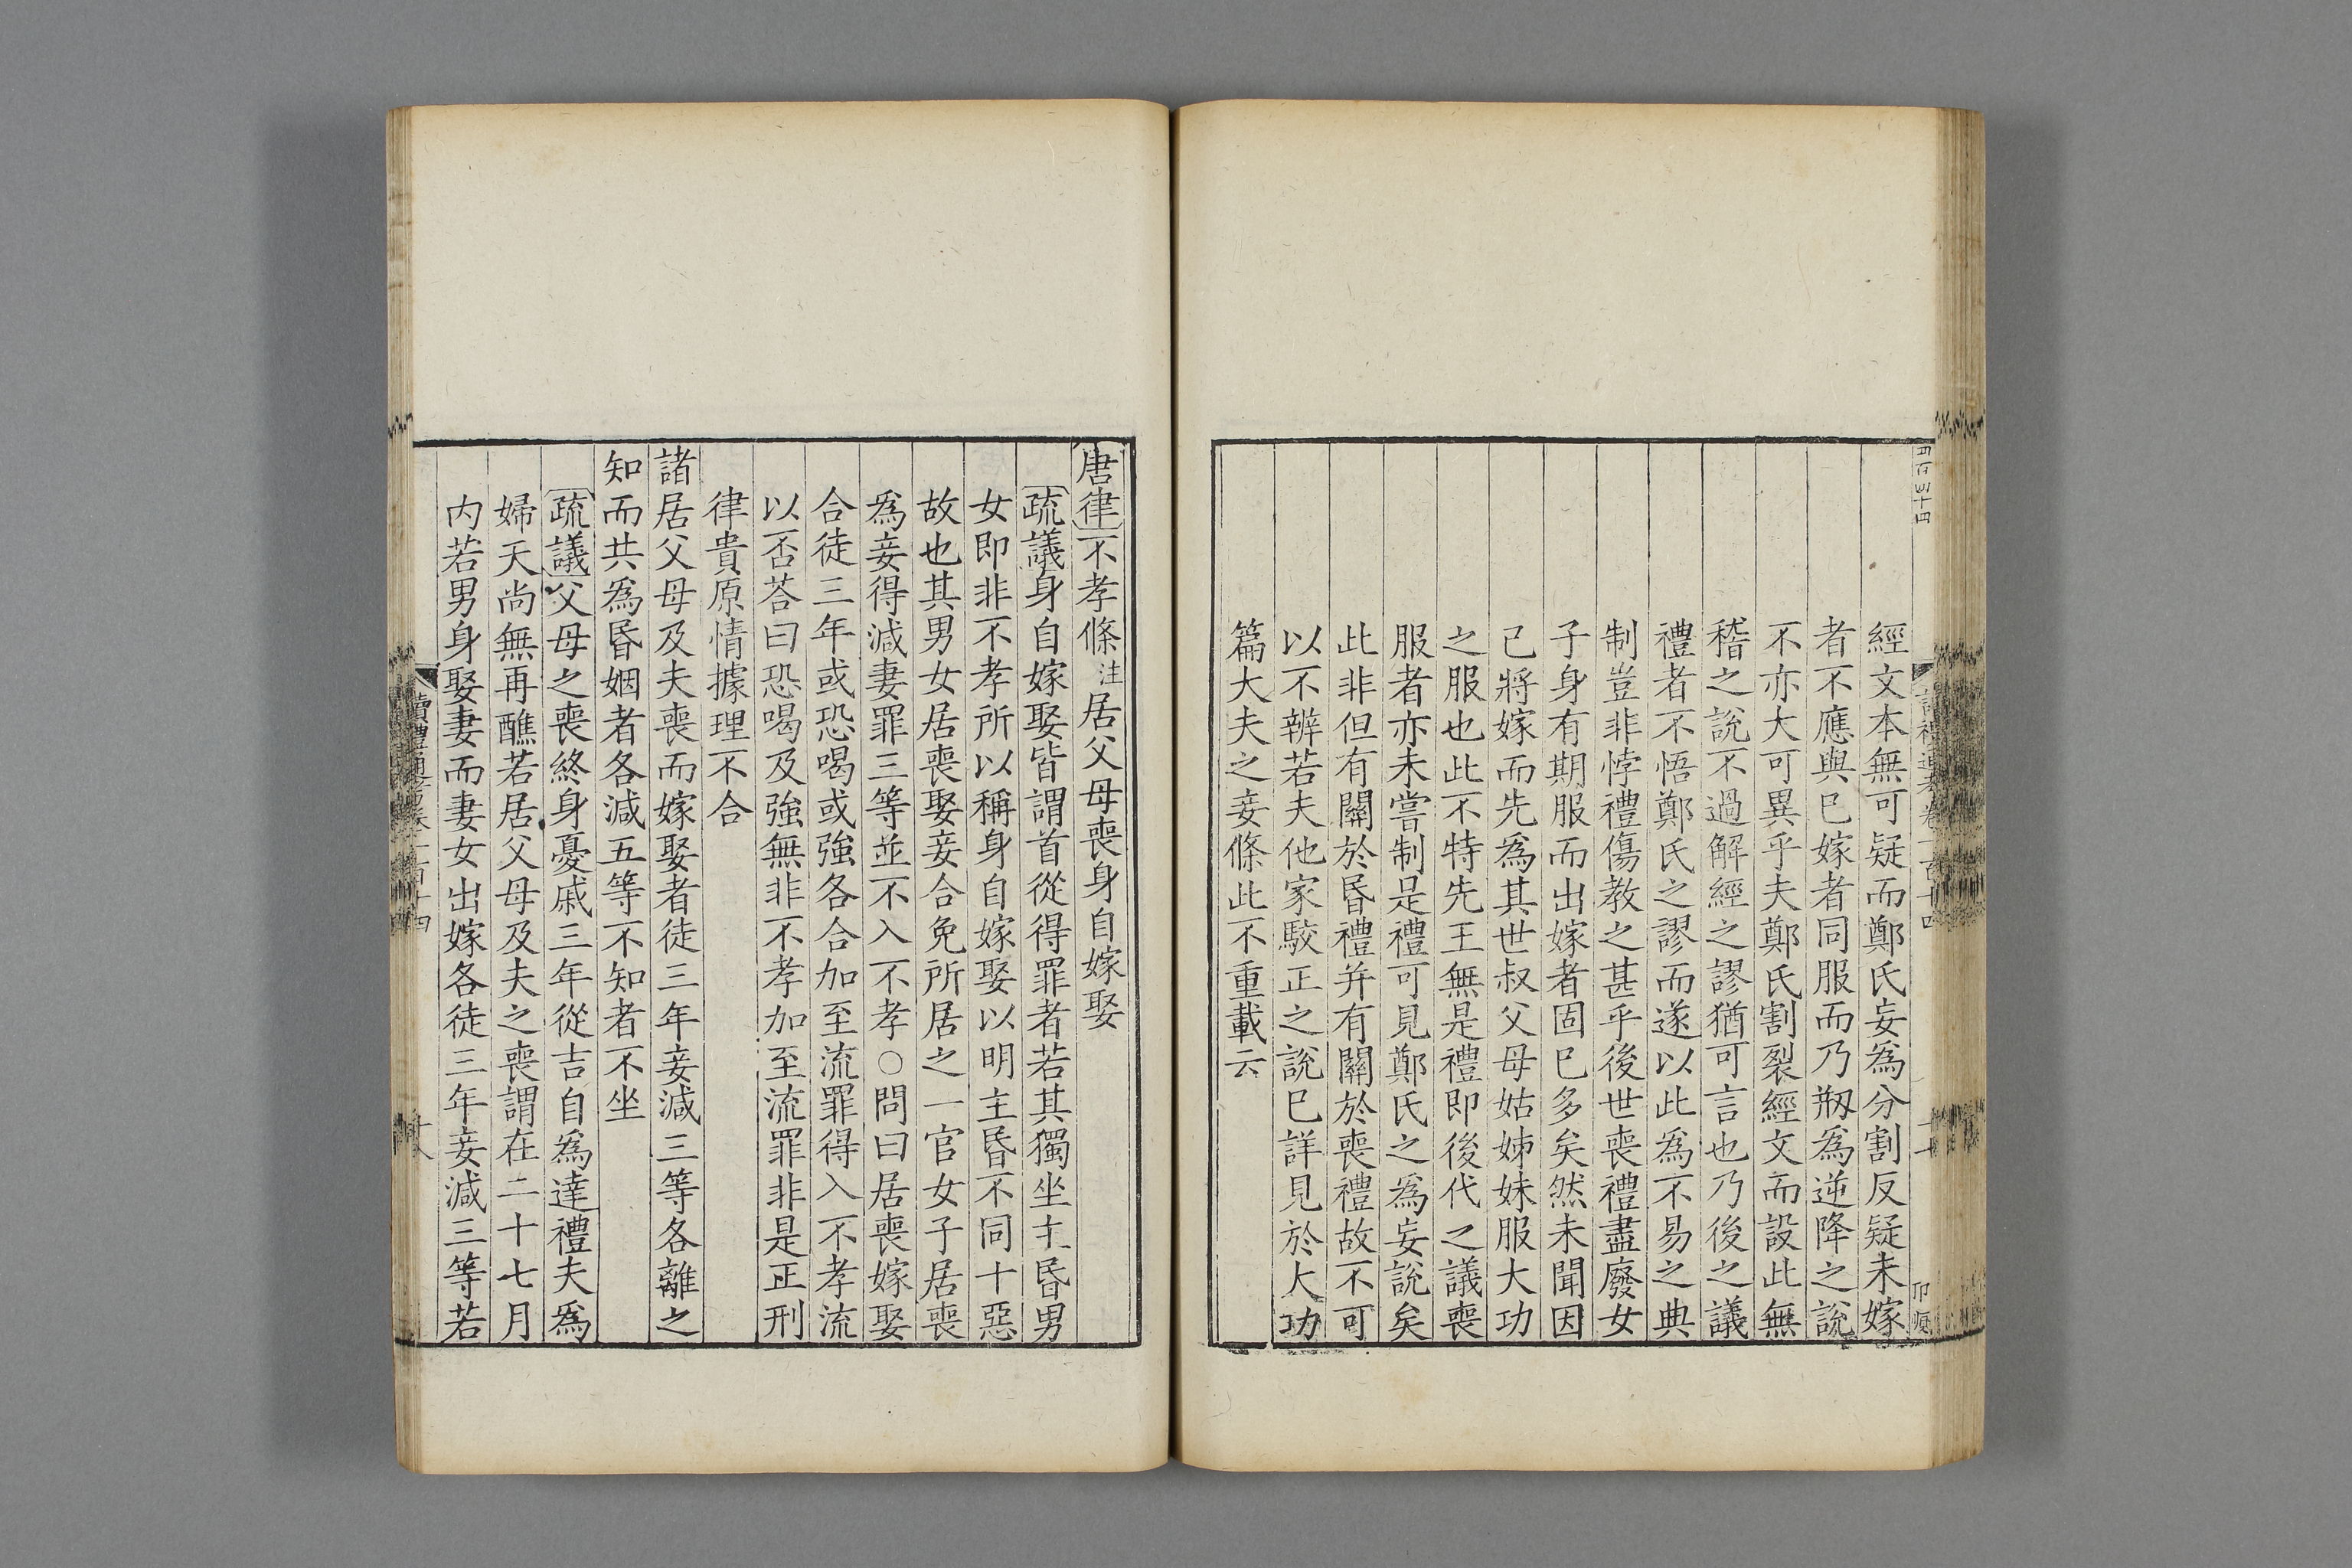 經文本無可疑而鄭氏妄為分割反疑未嫁
者不應與已嫁者同服而乃剏為逆降之說
不亦大可異乎夫鄭氏割裂經文而設此無
稽之說不過解經之謬猶可言也乃後之議
禮者不悟鄭氏之謬而遂以此為不易之典
制豈非悖禮傷教之甚乎後世喪禮盡廢女
子身有期服而出嫁者固已多矣然未聞因
已將嫁而先為其世叔父母姑姊妹服大功
之服也此不特先王無是禮即後代之議喪
服者亦未嘗制是禮可見鄭氏之為妄說矣
此非但有關於昏禮并有關於喪禮故不可
以不辨若夫他家駁正之說已詳見於大功
篇大夫之妾條此不重載云
唐律不孝條注居父母喪身自嫁娶
疏議身自嫁娶皆謂首從得罪者若其獨坐主昏男
女即非不孝所以稱身自嫁娶以明主昏不同十惡
故也其男女居喪娶妾合免所居之一官女子居喪
為妾得減妻罪三等並不入不孝○問曰居喪嫁娶
合徒三年或恐喝或強各合加至流罪得入不孝流
以否荅曰恐喝及強無非不孝加至流罪非是正刑
律貴原情據理不合
諸居父母及夫喪而嫁娶者徒三年妾減三等各離之
知而共為昏姻者各減五等不知者不坐
疏議父母之喪終身憂戚三年從吉自為達禮夫為
婦天尚無再醮若居父母及夫之喪謂在二十七月
内若男身娶妻而妻女出嫁各徒三年妾減三等若